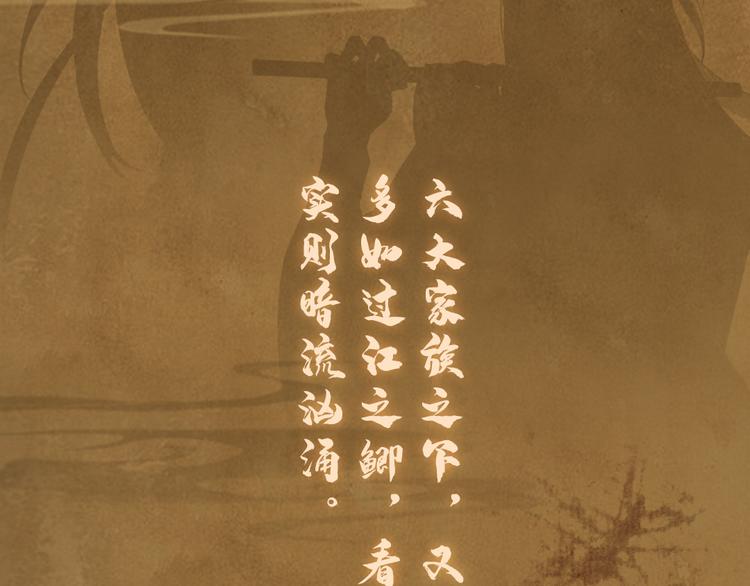 六大家族之下，又
多如过江之鲫，看
实则暗流汹涌。